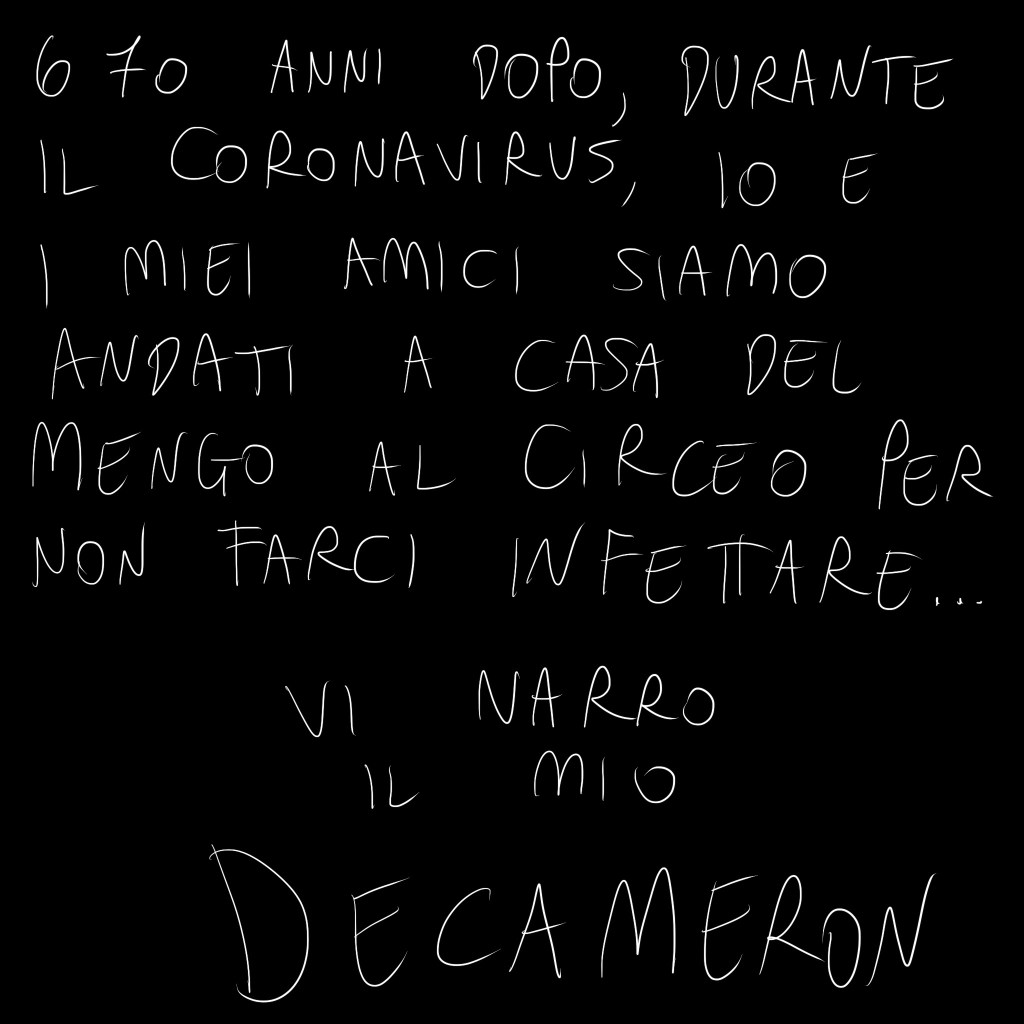 670 ANNI DOPO, DURANTE
IL CORONAVIRUS, IO E
I MIEI AMICI SIAMO
ANDATI A CASA DEL
MENGO AL CIRCEO PER
NON FARCI INFETTARE...
VI NARRO
IL MIO
DECAMERON